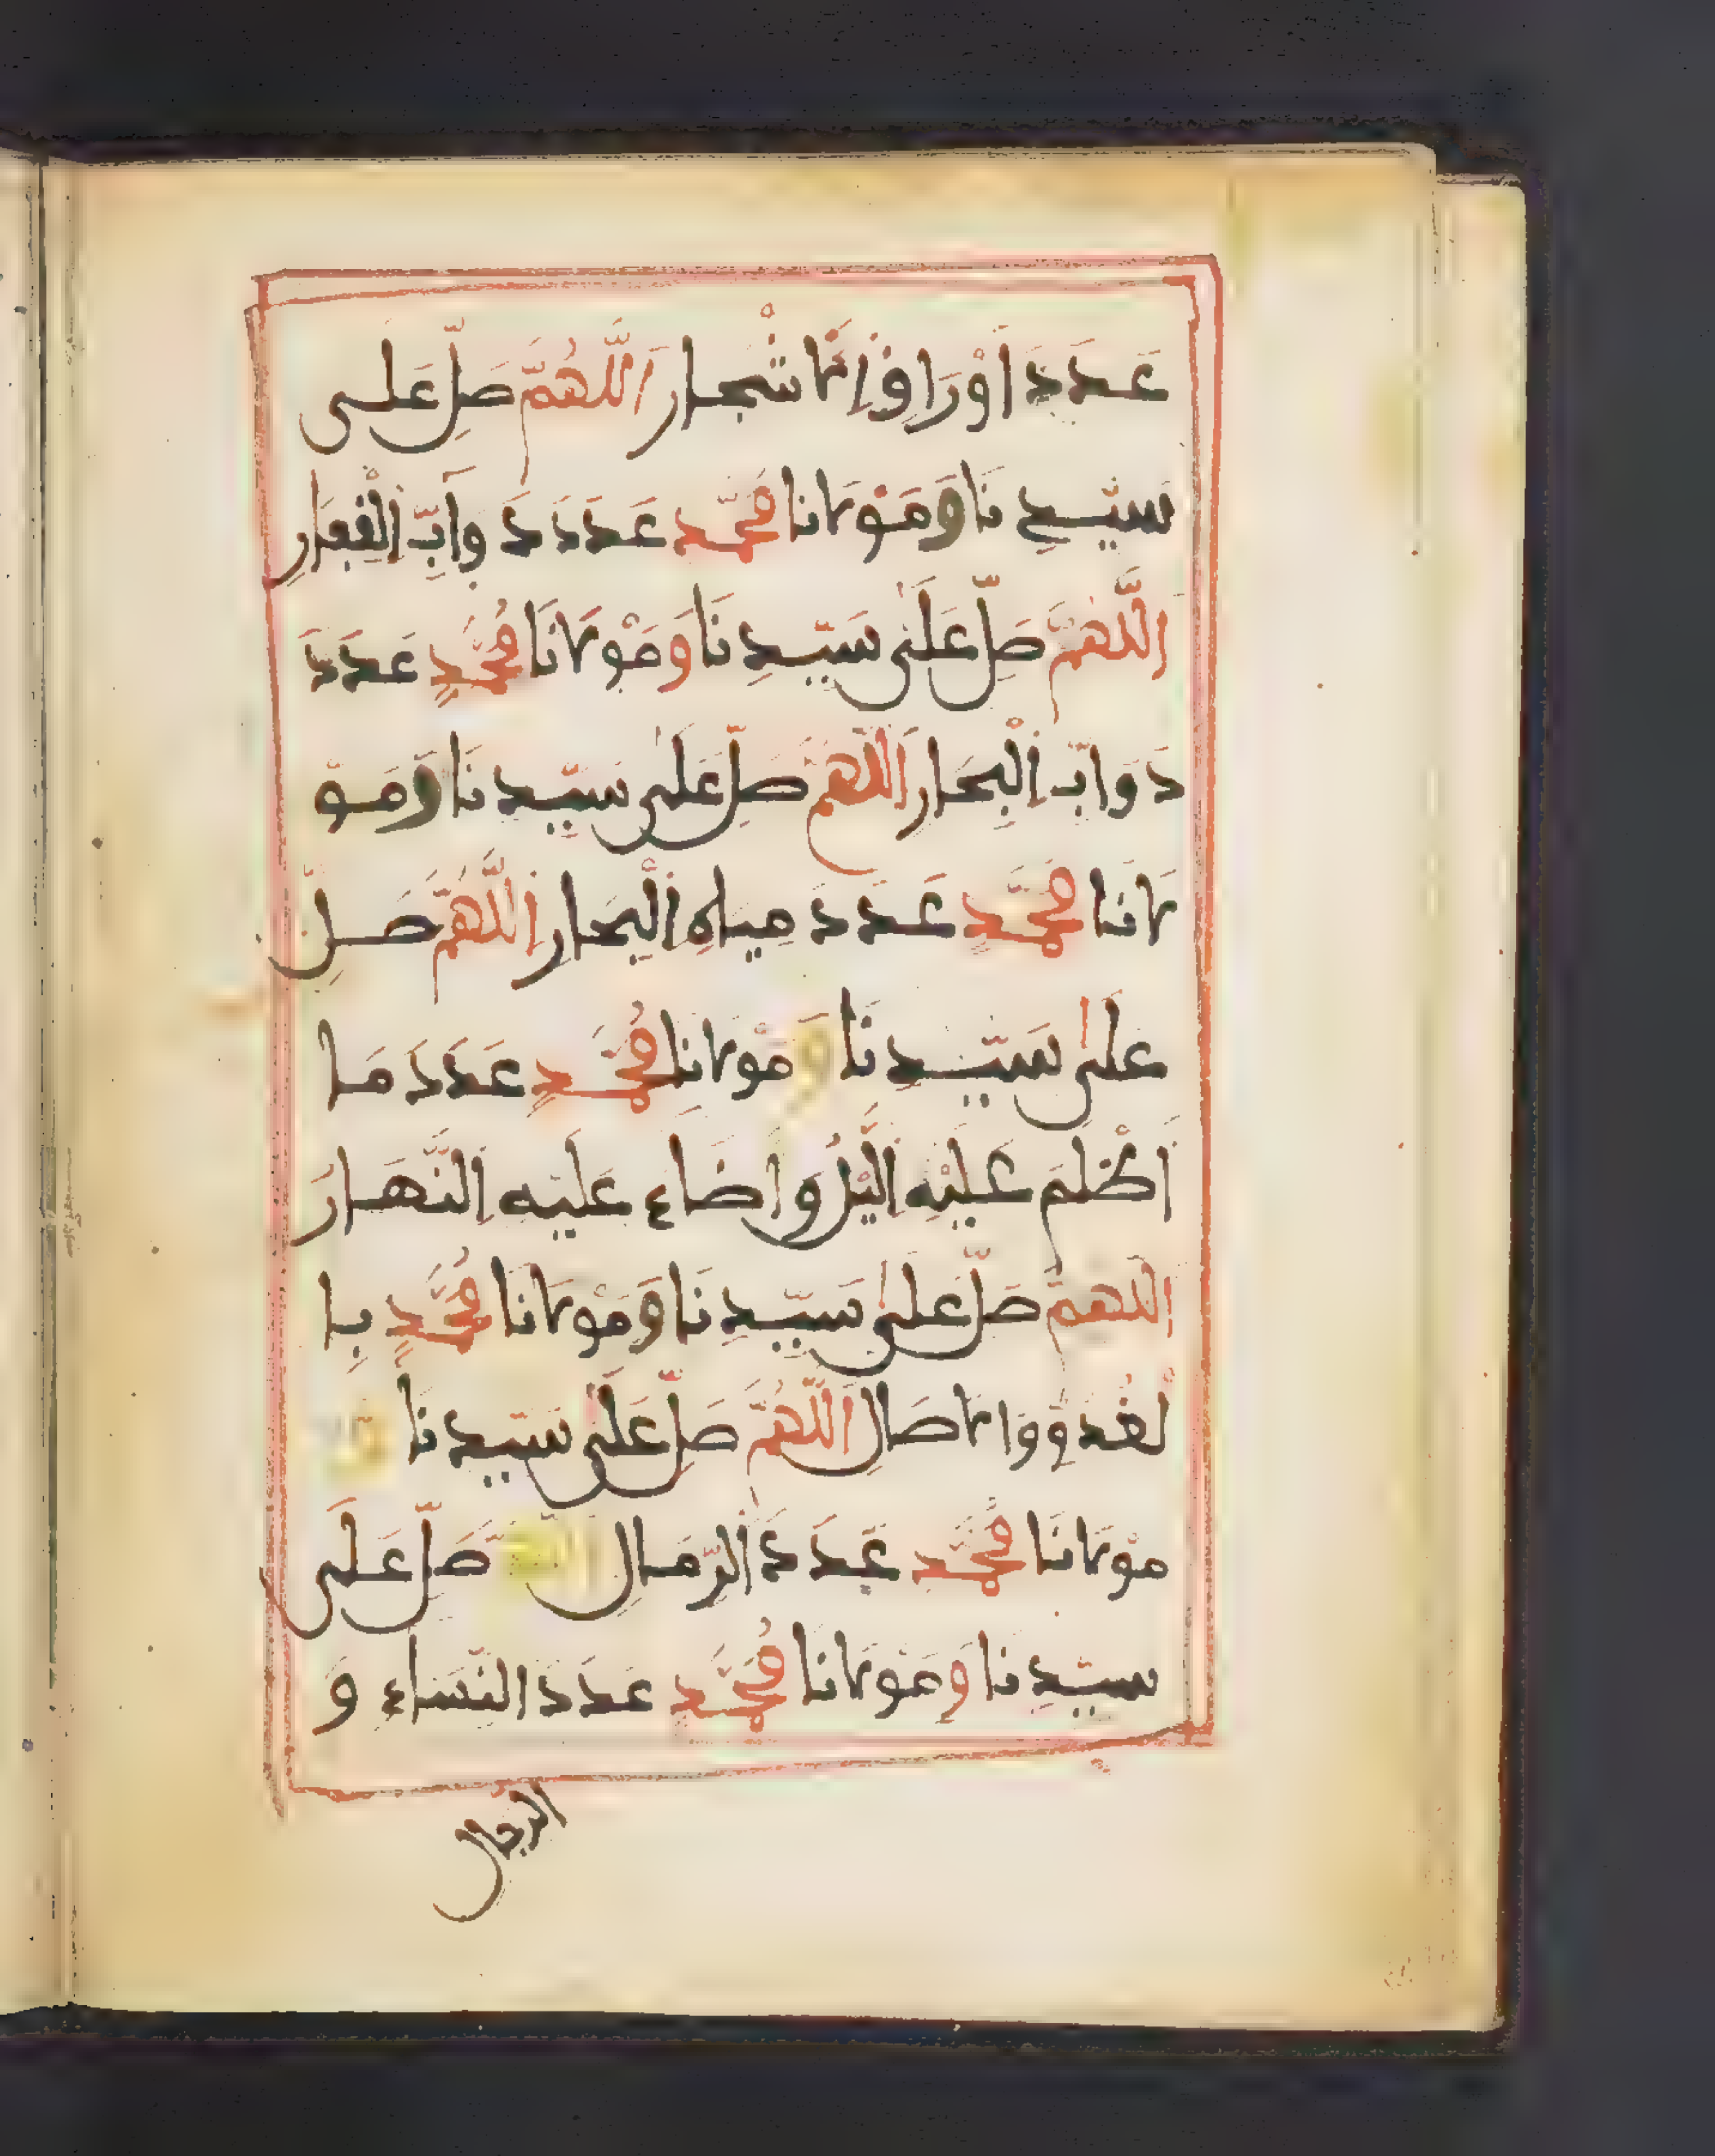 عَدَدَ أَوْرَاقِ الْأَشْجَارِ اللَّهُمَّ صَلِّ عَلَى
سَيِّدِنَا وَمَوْلَانَا مُحَمَّدٍ عَدَدَ دَوَابِّ الْقِفَارِ
اللَّهُمَّ صَلِّ عَلَى سَيِّدِنَا وَمَوْلَانَا مُحَمَّدٍ عَدَدَ
دَوَابِّ الْبِحَارِ اللَّهُمَّ صَلِّ عَلَى سَيِّدِنَا وَمَوْ
لَانَا مُحَمَّدٍ عَدَدَ مِيَاهِ الْبِحَارِ اللَّهُمَّ صَلِّ
عَلَى سَيِّدِنَا وَمَوْلَانَا مُحَمَّدٍ عَدَدَ مَا
أَظْلَمَ عَلَيْهِ الَّيْلُ وَأَضَاءَ عَلَيْهِ النَّهَارُ
اللَّهُمَّ صَلِّ عَلَى سَيِّدِنَا وَمَوْلَانَا مُحَمَّدٍ بِا
لْغُدُوِّ وَالْأَصَالِ اللَّهُمَّ صَلِّ عَلَى سَيِّدِنَا وَ
مَوْلَانَا مُحَمَّدٍ عَدَدَ الرِّمَالِ اللَّهُمَّ صَلِّ عَلَى
سَيِّدِنَا وَمَوْلَانَا مُحَمَّدٍ عَدَدَ النِّسَاءِ وَ
الرجال